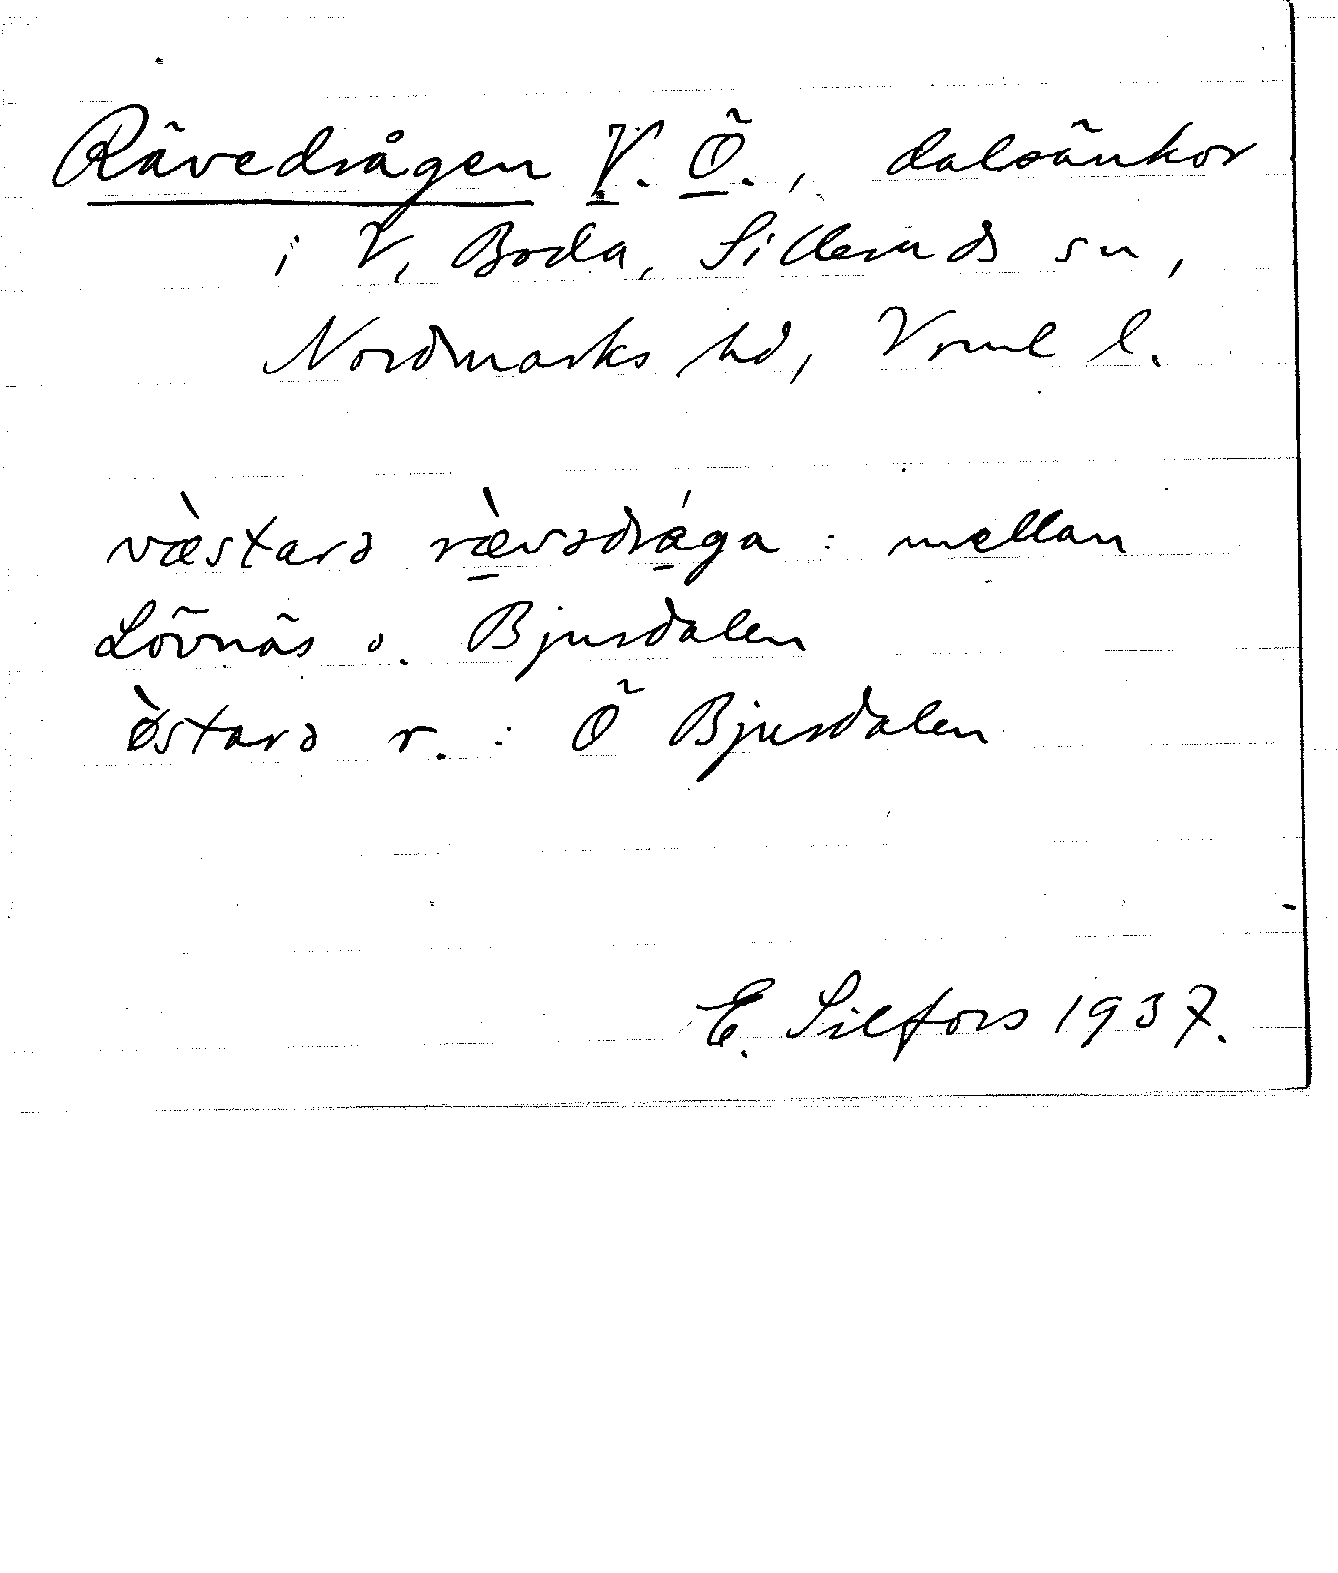 Rävedrågen V. Ö., dalsänkor
i V. Boda, Silleruds sn,
Nordmarks hd, Vrml l.
væ̀starə ræ̀vədrǻga : mellan
Lövnäs o. Bjursdalen
ø̀starə r. : Ö Bjursdalen
E. Silfors 1937.